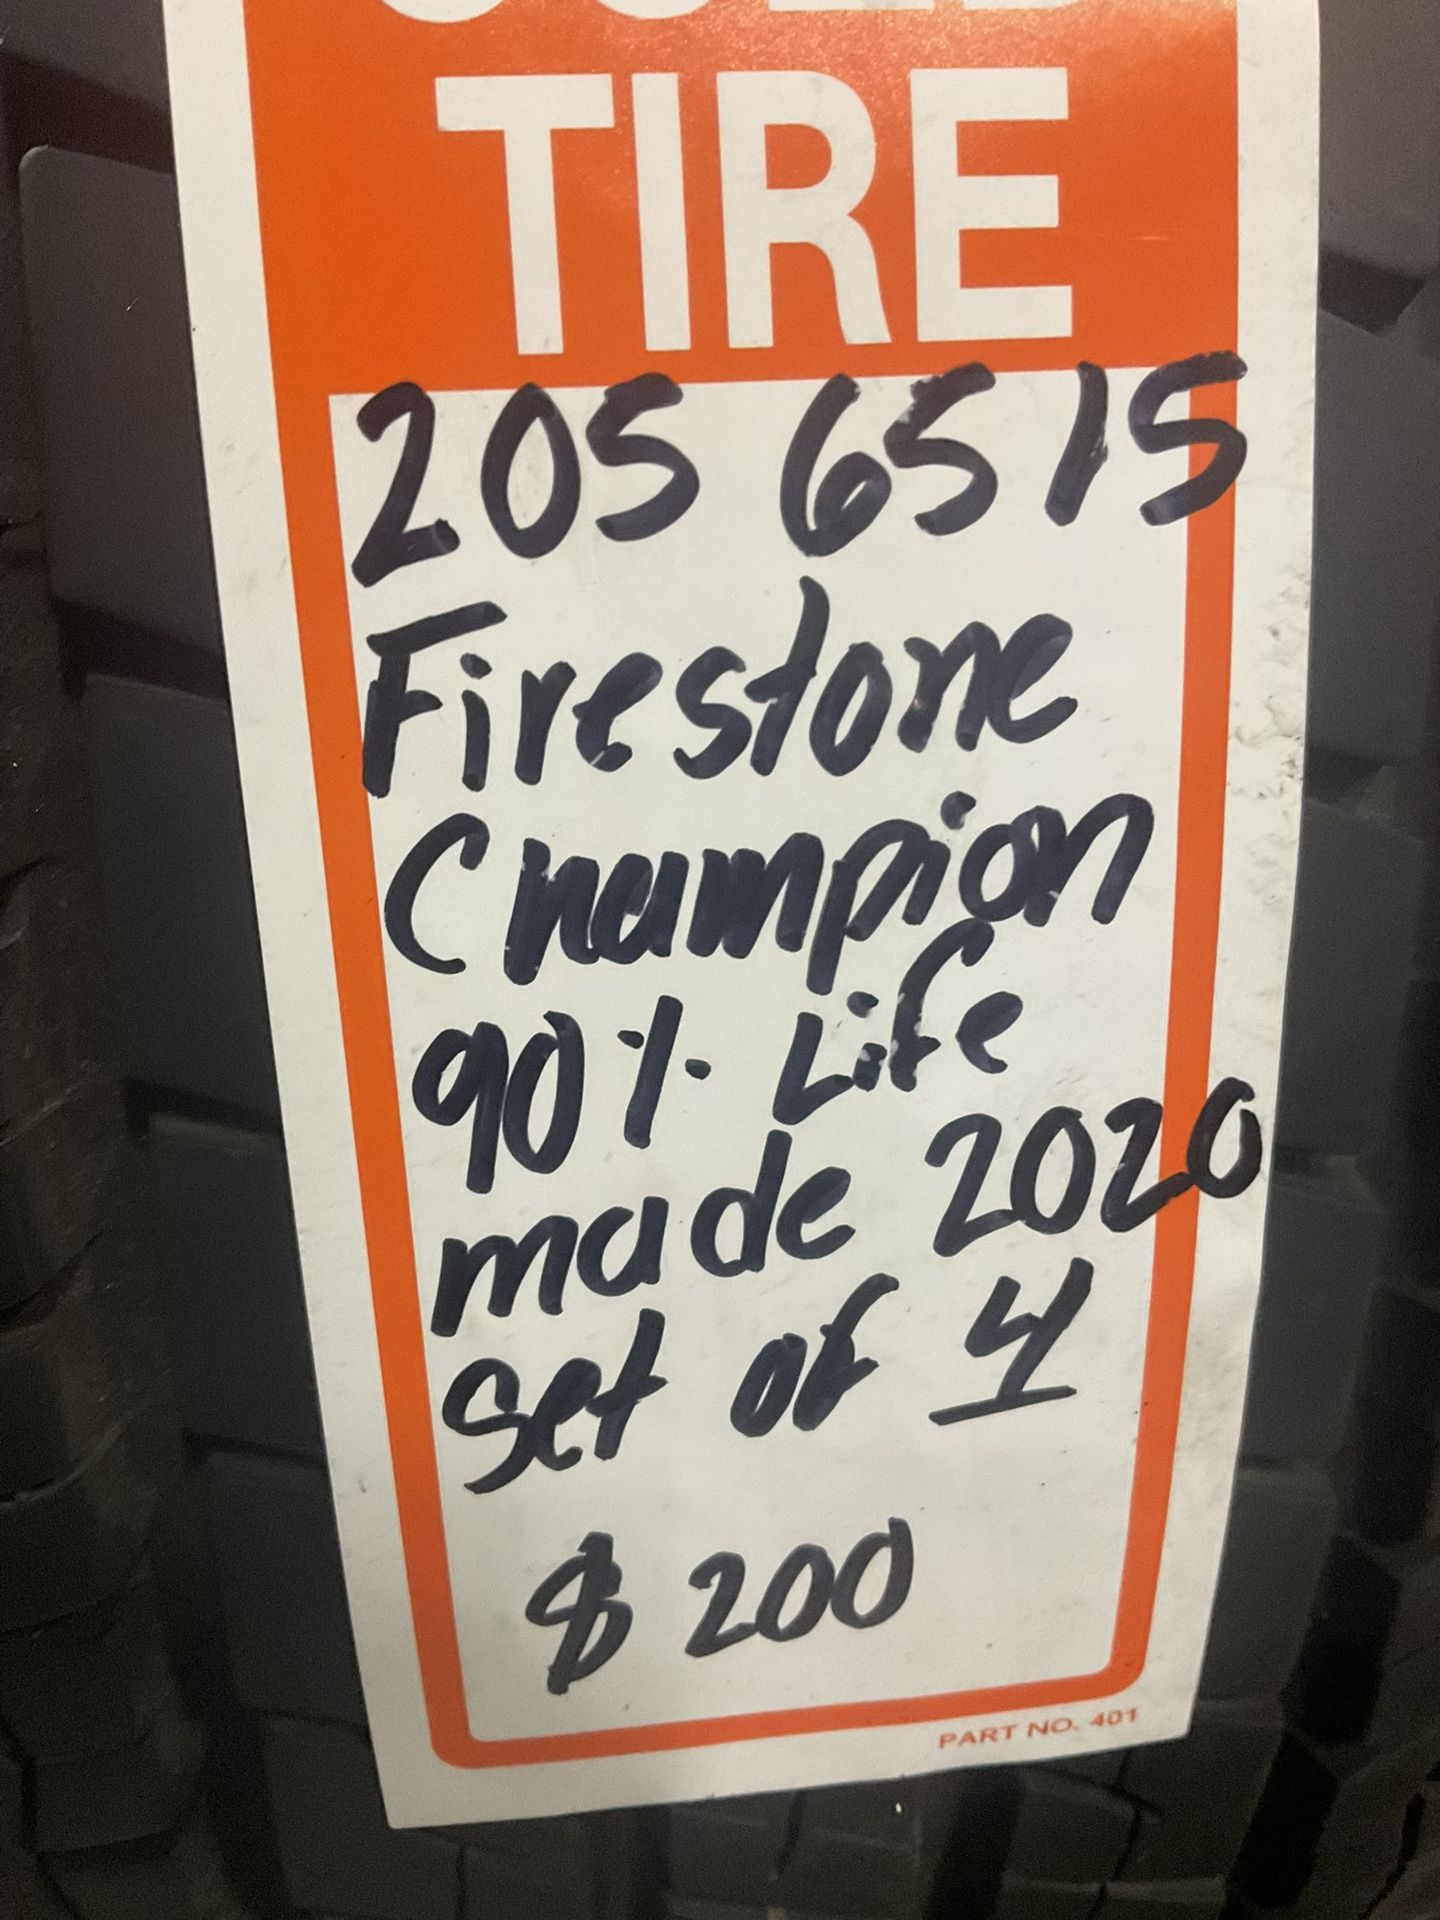 SOLD
TIRE
205 65 15
Firestone
Champion
90% Life
made 2020
set of 4
$ 200
PART NO. 401